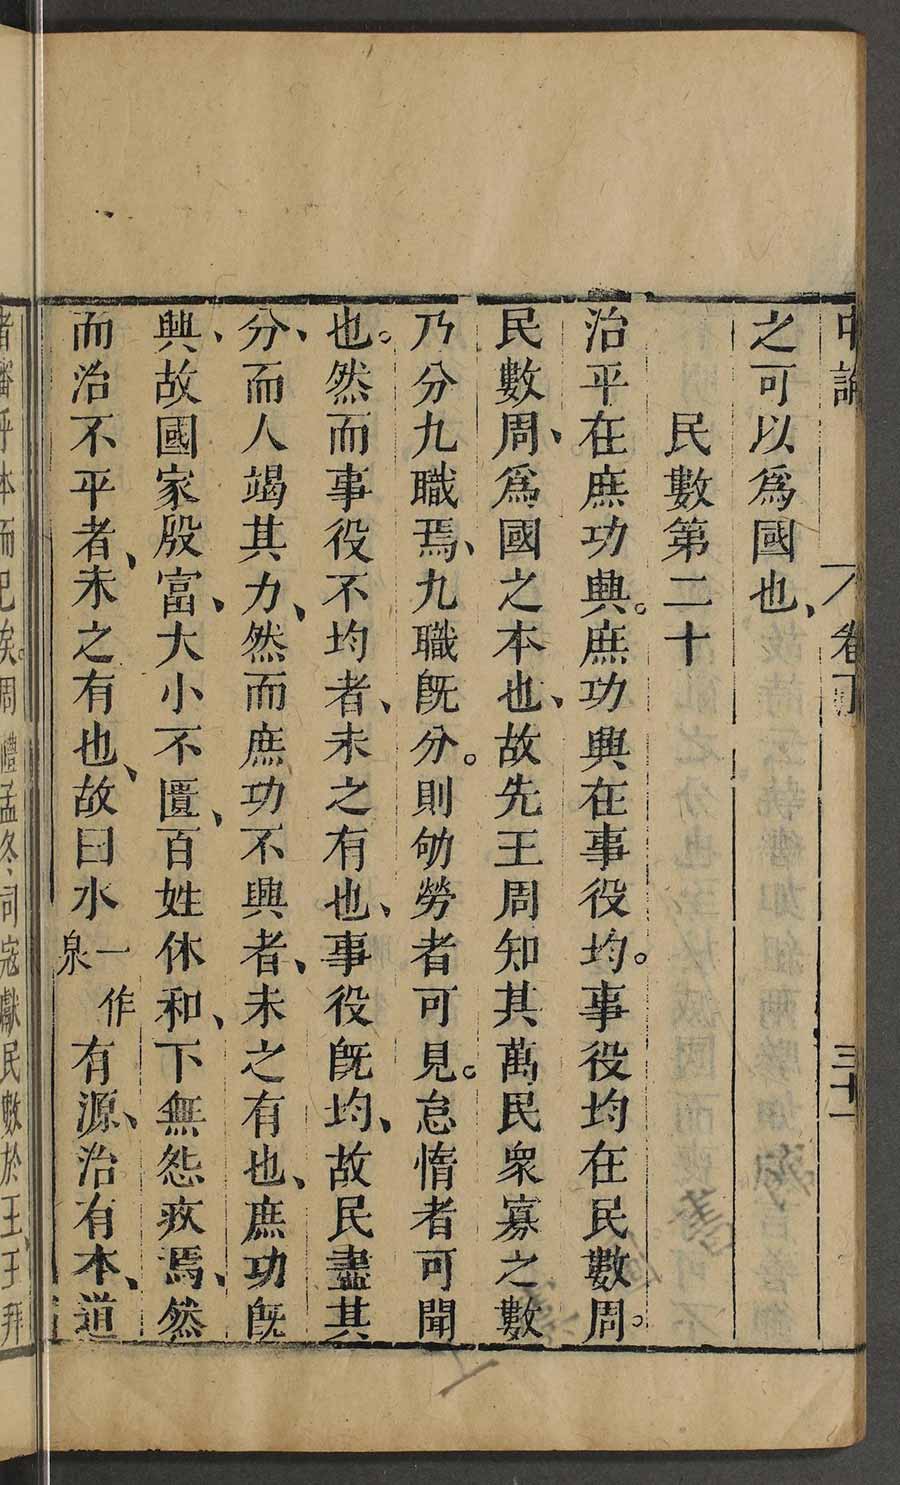 中論 卷下 三十一
之可以爲國也、
民數第二十
治平在庶功興。庶功興在事役均。事役均在民數周。
民數周、爲國之本也、故先王周知其萬民衆寡之數
乃分九職焉、九職旣分。則劬勞者可見。怠惰者可聞
也。然而事役不均者、未之有也、事役旣均、故民盡其
分、而人竭其力、然而庶功不興者、未之有也、庶功旣
興、故國家殷富、大小不匱、百姓休和、下無怨疚焉、然
而治不平者、未之有也、故曰水一作泉有源、治有本、道
者審乎本而已矣。周禮孟冬、司寇獻民數於王、王拜